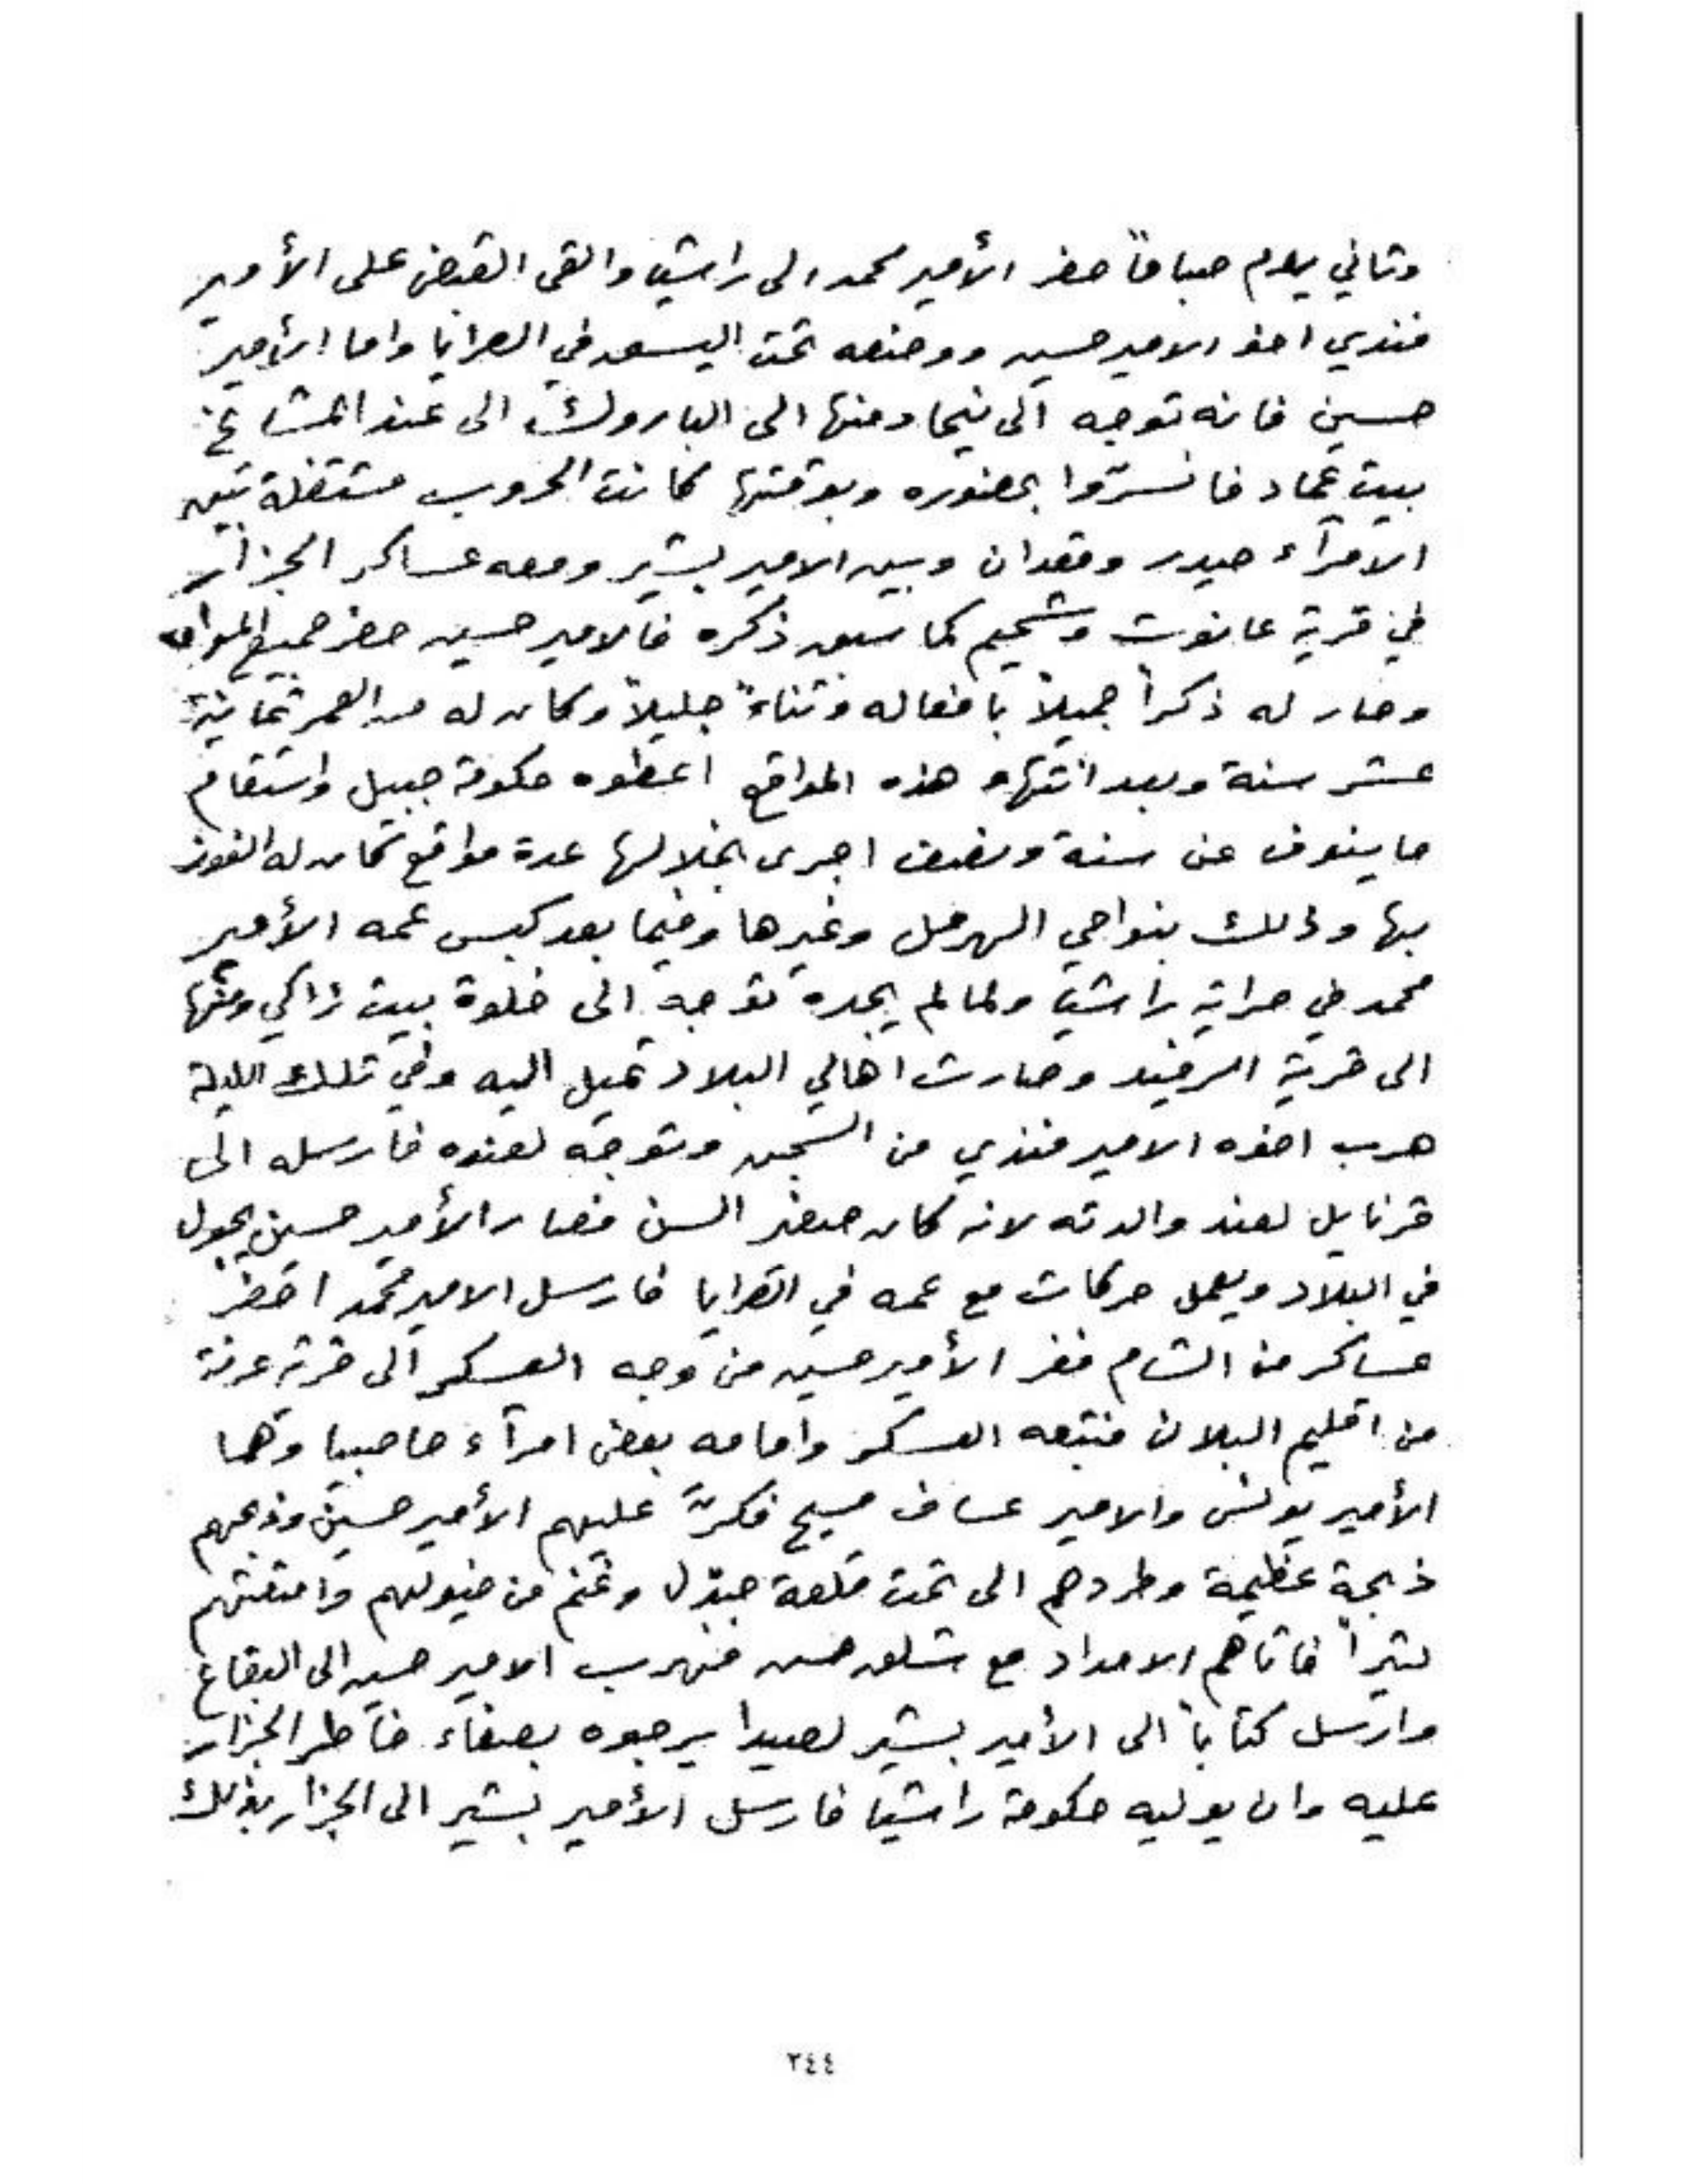 وثاني يوم صباحاً حضر الأمير محمد الى راشيا والقى القبض على الأمير
فندي اخو الامير حسين ووضعه تحت اليسق في الصرايا واما الأمير
حسين فانه توجه الى نيحا ومنها الى الباروك الى عند المشايخ
بيت عماد فانسرّوا بحضوره وبوقتها كانت الحروب مشتعلة بين
الامرآء حيدر وقعدان وبين الامير بشير ومعه عساكر الجزار
في قرية عانوت وشحيم كما سبق ذكره فالامير حسين حضر جميع المواقع
وصار له ذكراً جميلاً بافعاله وثناءً جليلاً وكان له من العمر ثمانية
عشر سنة وبعد انتهاء هذه المواقع اعطوه حكومة جبيل واستقام
ما ينوف عن سنة ونصف اجرى بخلالها عدة مواقع كان له الفوز
بها وذلك بنواحي الهرمل وغيرها وفيما بعد كبس عمه الأمير
محمد في صراية راشيا ولما لم يجده توجه الى خلوة بيت زاكي ومنها
الى قرية الرفيد وصارت اهالي البلاد تميل اليه وفي تلك الليلة
هرب اخوه الامير فندي من السجن وتوجه لعنده فارسله الى
قرنايل لعند والدته لانه كان صغير السن فصار الأمير حسين يجول
في البلاد ويعمل حركات مع عمه في القرايا فارسل الامير محمد احضر
عساكر من الشام ففر الأمير حسين من وجه العسكر الى قرية عرنة
من اقليم البلان فتبعه العسكر وامامه بعض امرآء حاصبيا وهما
الأمير يونس والامير عساف مسيح فكرّ عليهم الأمير حسين وذبحهم
ذبحة عظيمة وطردهم الى تحت قلعة جندل وغنم من خيولهم وامتعتهم
كثيراً فاتاهم الامداد مع فهرب الامير حسين الى البقاع
وارسل كتاباً الى الأمير بشير لصيدا يرجوه بصفاء خاطر الجزار
عليه وان يوليه حكومة راشيا فارسل الأمير بشير الى الجزار بذلك
٢٤٤